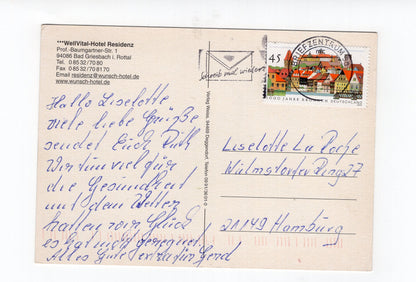 ***WellVital-Hotel Residenz
Prof.-Baumgartner-Str. 1
94086 Bad Griesbach i. Rottal
Tel. 0 85 32/70 80
Fax 0 85 32/70 81 70
Email residenz@wunsch-hotel.de
www.wunsch-hotel.de
Hallo Liselotte
viele liebe Grüße
sendet Euch Ruth
Wir tun viel für
die Gesundheit
mit dem Wetter
hatten wir Glück
es hat nicht geregnet
Alles Gute
Schreib mal wieder
BRIEFZENTRUM
45
1000 JAHRE
DEUTSCHLAND
Verlag Weiss, 94469 Deggendorf, Telefon 09 91/
Liselotte La Roche
Wilmstorfer Ring 27
21149 Hamburg